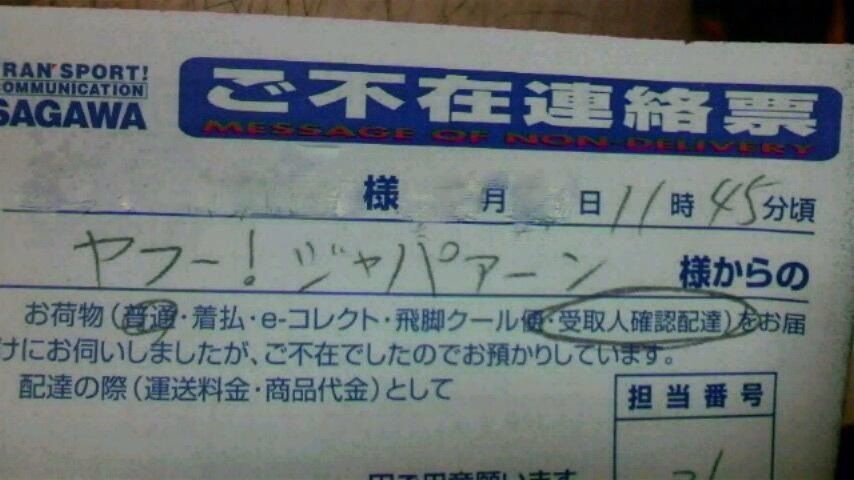 TRAN'SPORT!
COMMUNICATION
SAGAWA
ご不在連絡票
MESSAGE OF NON-DELIVERY
様 月 日 11時45分頃
ヤフー!ジャパァーン 様からの
お荷物(普通・着払・e-コレクト・飛脚クール便・受取人確認配達)をお届
けにお伺いしましたが、ご不在でしたのでお預かりしています。
配達の際(運送料金・商品代金)として
担当番号
円ご用意願います